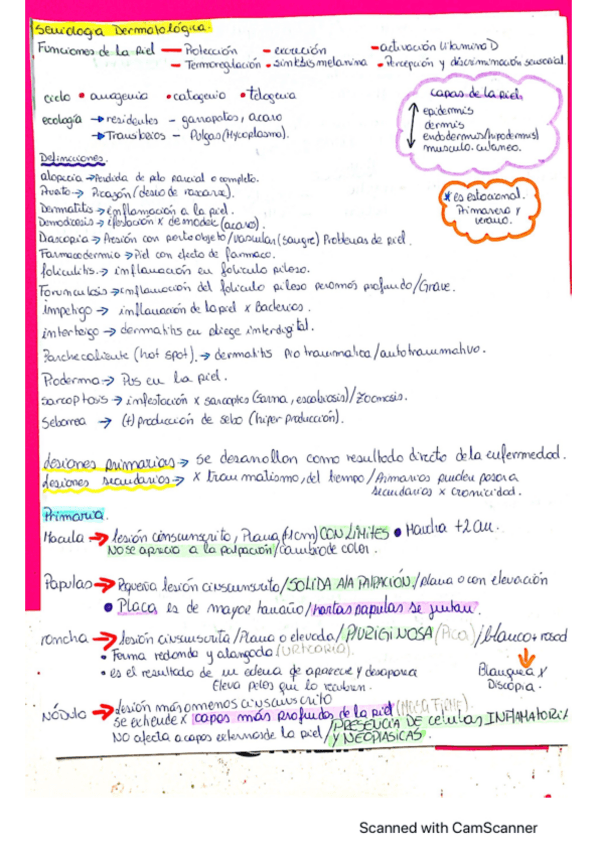 Semiología Dermatológica.
Funciones de la Piel — Protección - excreción - activación Vitamina D
- Termoregulación • Sintesis melanina • Percepción y discriminación sensorial
ciclo • anagenia • catagenia • telogenia
capas de la piel.
epidermis
dermis
endodermis/hipodermis/
musculo. cutaneo.
ecología → residentes - garrapatas, acaro
→ Transitorios - Pulgas (Mycoplasma).
Definiciones.
alopecia → Perdida de pelo parcial o completo.
→ Picazón (deseo de rascarse).
* es estacional.
Primavera y
verano.
Dermatitis → inflamación a la piel.
Demodicosis → infestación x demodex (acaro).
Diascopia → Presión con porta objeto/vascular (sangre) Problemas de piel.
Farmacodermia → Piel con efecto de farmaco.
foliculitis. → inflamación en foliculo piloso.
Forunculosis → inflamación del foliculo piloso pero más profundo/Grave.
impetigo → inflamación de la piel x Bacterias.
intertrigo → dermatitis en pliege interdigital.
Parche caliente (hot spot). → dermatitis Pio traumatica/autotraumativo.
Pioderma → Pus en la piel.
Sarcoptosis → infestación x sarcoptes (sarna, escabiosis)/Zoonosis.
Seborrea → (+) producción de sebo (hiper Producción).
lesiones primarias → se desarrollan como resultado directo de la enfermedad.
lesiones secundarias → x traumatismo, del tiempo/Primarias pueden pasar a
secundarias x cronicidad.
Primaria.
Macula → lesión circunscrita, Plana (1cm) CON LIMITES • Mancha +2 cm.
NO se aprecia a la palpación/cambio de color.
Papulas → Pequeña lesión circunscrita/SOLIDA A LA PALPACIÓN/plana o con elevación
• Placa es de mayor tamaño/hartas papulas se juntan.
roncha → lesión circunscrita/Plana o elevada/PURIGINOSA (Pica)/blanco + rosad
• Forma redonda y alargada (URTICARIA).
• es el resultado de un edema de aparece y desaparece
Eleva pelos que lo recubren.
Blanquea x
Diascopia.
NÓDULO → lesión más o menos circunscrito
se extiende x capas más profundas de la piel
NO afecta a capas externas de la piel/PRESENCIA DE celulas INFLAMATORIA
Y NEOPLASICAS.
Scanned with CamScanner